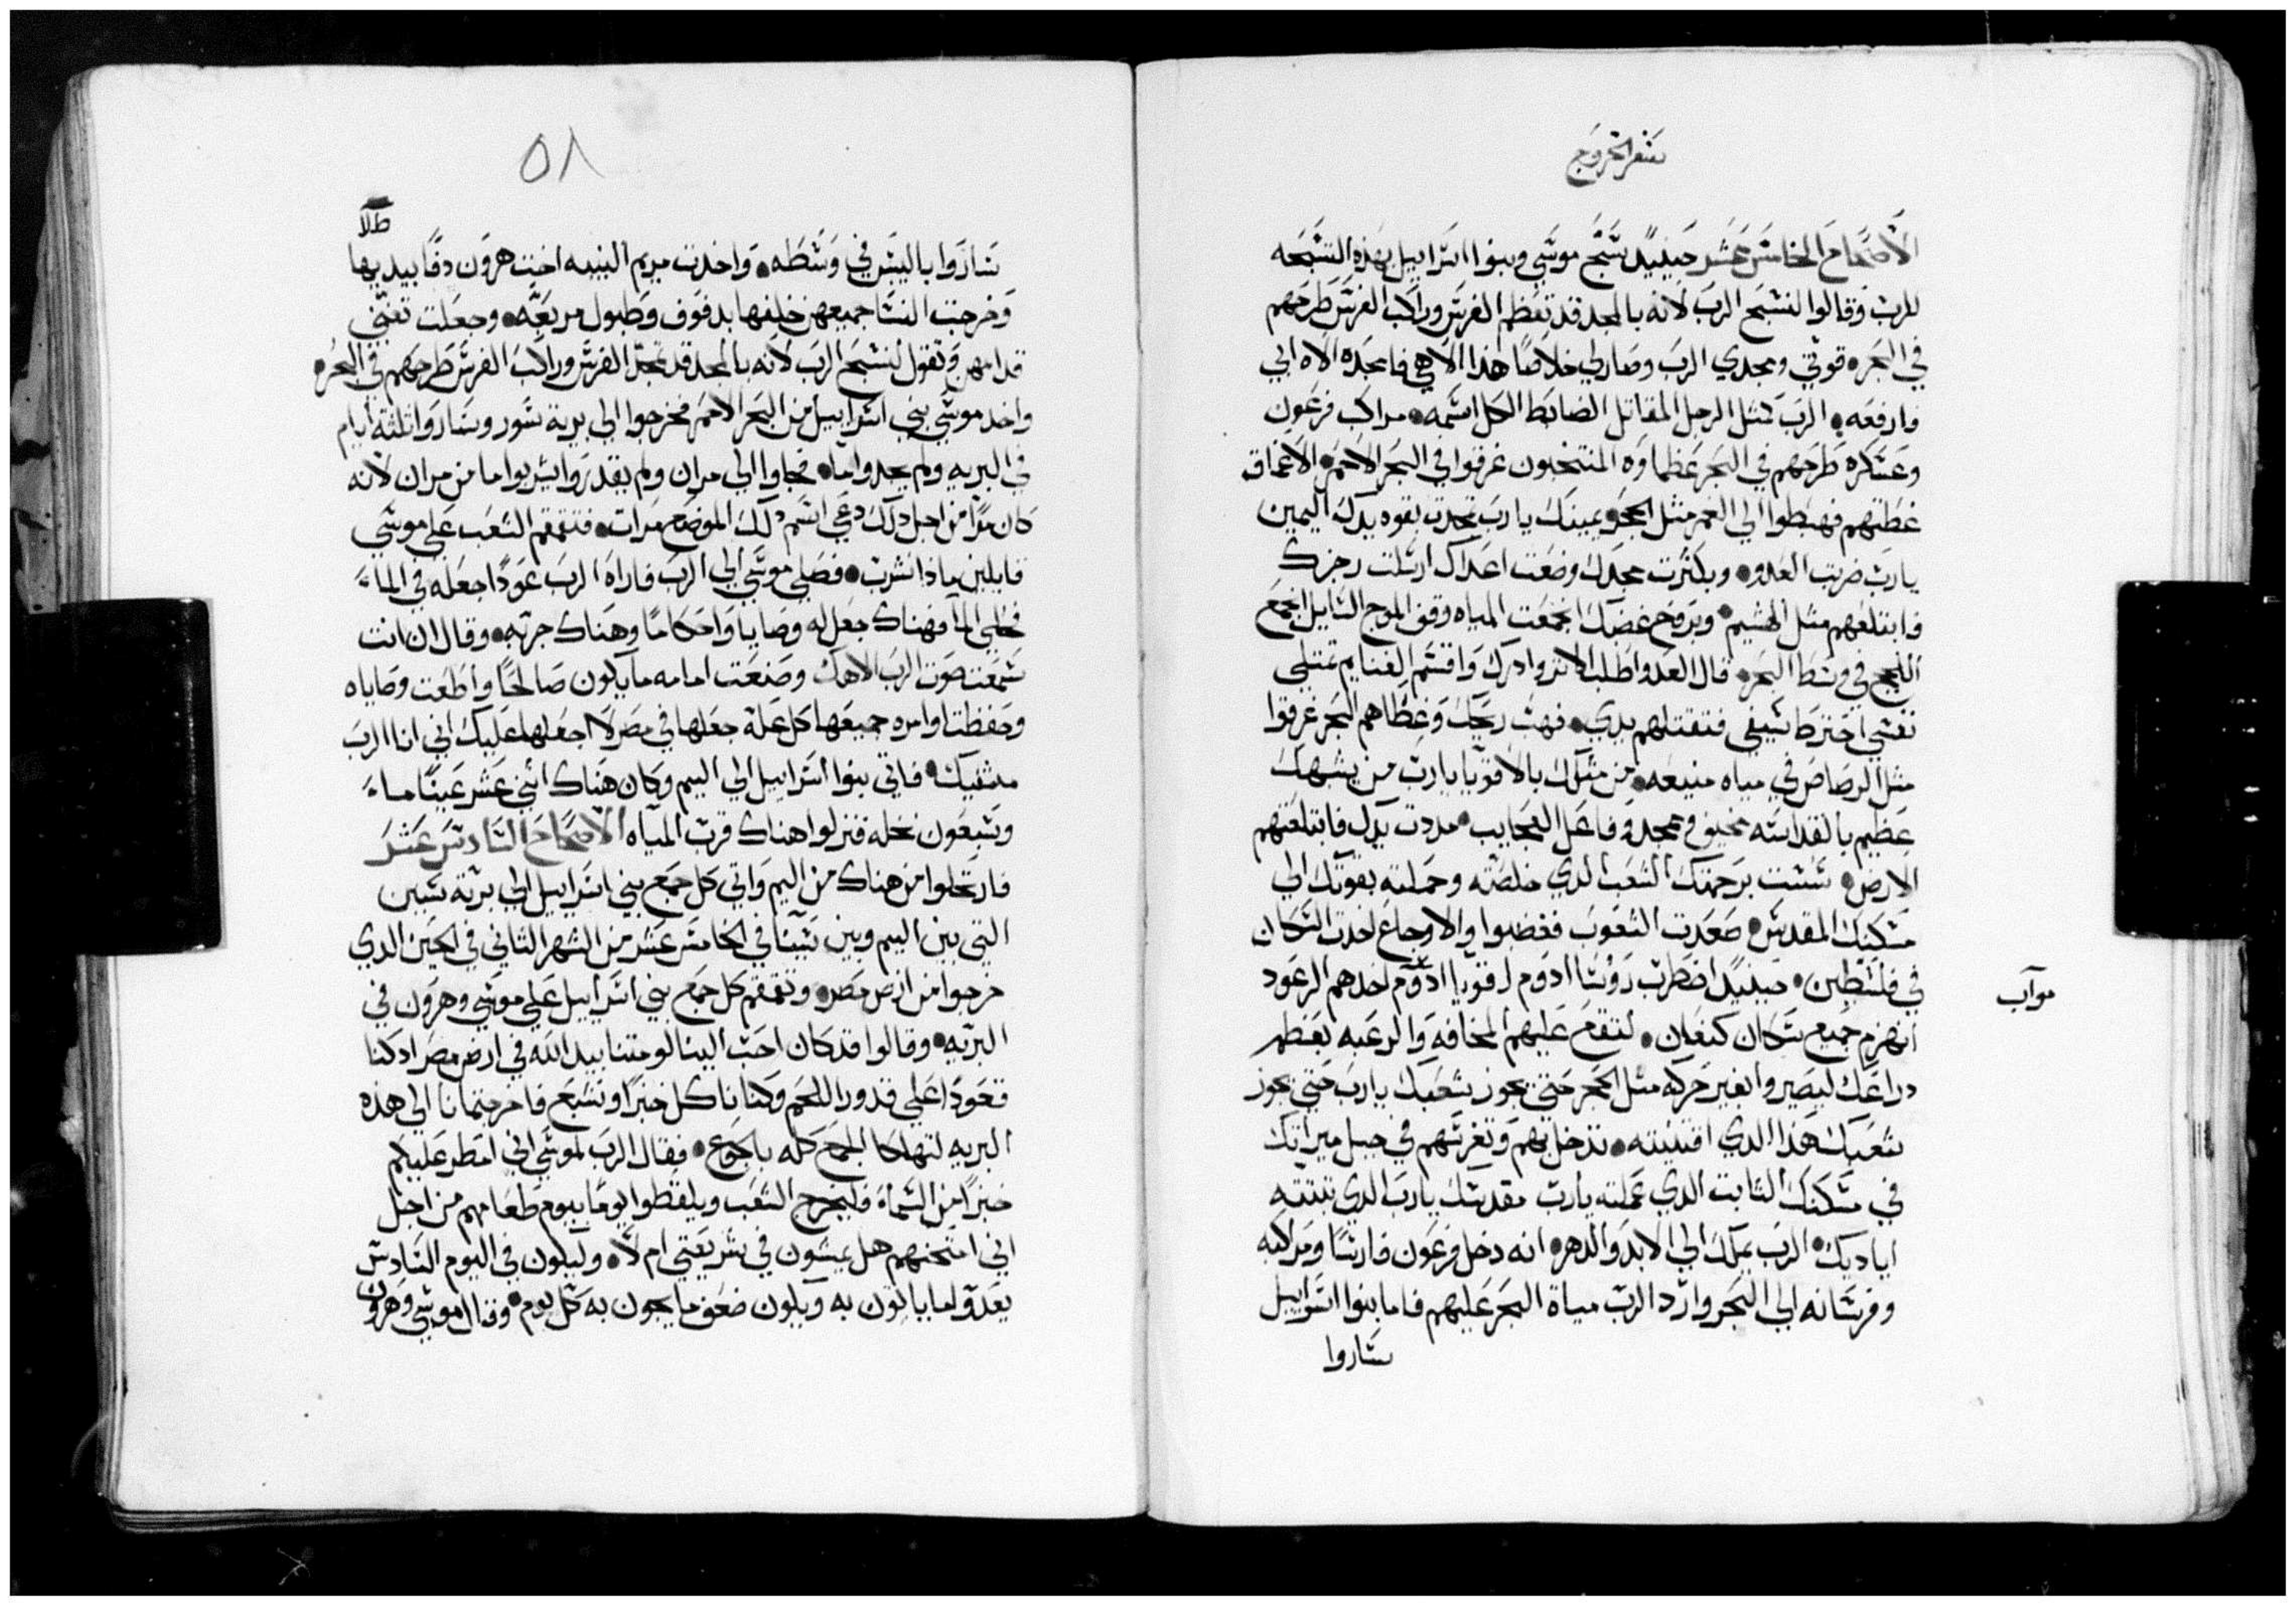 سفر الخروج
الاصحاح الخامس عشر حينيدٍ سبح موسي وبنوا اسراييل بهذه التسبحه
للرب وقالوا لنسبح الرب لانه بالمجد قد تعظم الفرس وراكب الفرس طرحهم
في البحر ٥ قوتي ومجدي الرب وصار لي خلاصًا هذا الاهي فامجده الاه ابي
وارفعه • الرب مثل الرجل المقاتل الضابط الكل اسمه • مراكب فرعون
وعسكره طرحهم في البحر عظماوه المنتخبون غرقوا في البحر الاحمر الاعماق
غطتهم فهبطوا الي العمر مثل الحجر • يمينك يارب تمجدت بقوه يدك اليمين
يارب ضربت العدو • وبكثرت مجدك وضعت اعداك ارسلت رجزك
فابتلعهم مثل الهشيم • وبروح غضبك اجتمعت المياه وقف الموج السايل اجمع
اللجج في وسط البحر • قال العدو اطلب الاثر وادرك واقسم الغنايم تمتلي
نفسي اخترط سيفي فتقتلهم يدي • فهبت ريحك وغطاهم البحر غرقوا
مثل الرصاص في مياه منيعه • من مثلك بالاقويا يارب من يشبهك
عظيم بالقداسه مخيف وممجد وفاعل العجايب • مددت يدك فابتلعتهم
الارض • سُست برحمتك الشعب الدي خلصته وحملته بقوتك الي
مسكنك المقدس • صعدت الشعوب فغضبوا والاوجاع اخدت السكان
في فلسطين • حينيدٍ اضطرب روسا ادوم اقويا ادوم اخدهم الرعود
موآب
انهزم جميع سكان كنعان • لتقع عليهم المخافه والرعبه بعظم
دراعك ليصيروا بغير حركه مثل الحجر حتي يجوز شعبك يارب حتي يجوز
شعبك هذا الدي اقتنيته • تدخل بهم وتغرسهم في جبل ميراثك
في مسكنك الثابت الدي عملته يارب مقدسك يارب الدي تبتته
اياديك • الرب يملك الي الابد والدهر • انه دخل فرعون فارسًا ومراكبه
وفرسانه الي البحر وارد الرب مياة البحر عليهم فاما بنوا اسراييل
ساروا
٥٨
ساروا باليبس في وسطه • واخدت مريم النبيه اخت هرون دفًا بيديها
وخرجت النسا جميعهن خلفها بدفوف وطبول مربعه • وجعلت تغني
قدامهن وتقول لنسبح الرب لانه بالمجد قد تمجد الفرس وراكب الفرس طرحهم في البحر ٥
واخد موسي بني اسراييل من البحر الاحمر فخرجوا الي برية سور وساروا تلثة ايام
في البريه ولم يجدوا ما • فجاوا الي مران ولم يقدروا يشربوا ما من مران لانه
كان مرًا من اجل دلك دعي اسم دلك الموضع مرات • فتقمقم الشعب علي موسي
قايلين ماذا نشرب • فصلي موسي الي الرب فاراه الرب عودًا جعله في الماء
فحلي الما فهناك جعل له وصايا واحكامًا وهناك جربه • وقال ان انت
سمعت صوت الرب الاهك وصنعت امامه ما يكون صالحًا واطعت وصاياه
وحفظت اوامره جميعها كل علة جعلها في مصر لا اجعلها عليك اني انا الرب
مشفيك • فاتي بنوا اسراييل الي اليم وكان هناك اثني عشر عينًا ماء
وسبعون نخله فنزلوا هناك قرب المياه الاصحاح السادس عشر
فارتحلوا من هناك من اليم واتي كل جمع بني اسراييل الي برية سين
التي بين اليم وبين سينا في الخامس عشر من الشهر الثاني في الحين الدي
خرجوا من ارض مصر • وتقمقم كل جمع بني اسراييل علي موسي وهرون في
البريه • وقالوا قد كان احب الينا لو متنا بيد الله في ارض مصر اد كنا
قعودًا علي قدور اللحم وكنا ناكل خبزًا ونشبع فاخرجتمانا الي هذه
البريه لتهلكا الجمع كله بالجوع • فقال الرب لموسي اني امطر عليكم
خبزًا من السماء فليخرج الشعب ويلقطوا يومًا بيوم طعامهم من اجل
اني امتحنهم هل يمشون في شريعتي ام لا • وليكون في اليوم السادس
يعدوا ما ياتون به ويكون ضعف ما يجون به كل يوم • وقال موسي وهرون